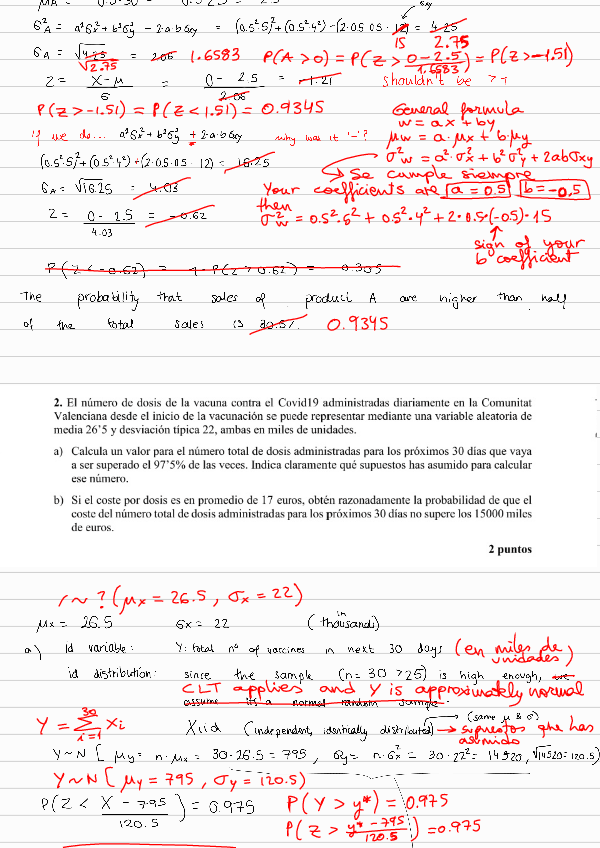 σ²A = a²σx² + b²σy² − 2·a·b·σxy = (0.5²·5²)+(0.5²·4²)−(2·0.5·0.5·12) = 4.25
is 2.75
σA = √4.25 = 2.06 1.6583 P(A > 0) = P(Z > 0 − 2.5 / 1.6583) = P(Z > −1.51)
√2.75
Z = X − μ / σ = 0 − 2.5 / 2.06 = −1.21 shouldn't be
P(Z > −1.51) = P(Z < 1.51) = 0.9345
General formula
w = ax + by
If we do... a²σx² + b²σy² + 2·a·b·σxy why was it '−'? μw = a·μx + b·μy
(0.5²·5²)+(0.5²·4²)+(2·0.5·0.5·12) = 16.25 σ²w = a²·σ²x + b²σ²y + 2abσxy
→ Se cumple siempre
σA = √16.25 = 4.03 Your coefficients are a = 0.5 b = −0.5
then
Z = 0 − 2.5 / 4.03 = −0.62 σ²w = 0.5²·5² + 0.5²·4² + 2·0.5·(−0.5)·15
sign of your
b coefficient
P(Z < −0.62) = 1 − P(Z > 0.62) = 0.305
The probability that sales of product A are higher than half
of the total sales is 30.5%. 0.9345
2. El número de dosis de la vacuna contra el Covid19 administradas diariamente en la Comunitat
Valenciana desde el inicio de la vacunación se puede representar mediante una variable aleatoria de
media 26'5 y desviación típica 22, ambas en miles de unidades.
a) Calcula un valor para el número total de dosis administradas para los próximos 30 días que vaya
a ser superado el 97'5% de las veces. Indica claramente qué supuestos has asumido para calcular
ese número.
b) Si el coste por dosis es en promedio de 17 euros, obtén razonadamente la probabilidad de que el
coste del número total de dosis administradas para los próximos 30 días no supere los 15000 miles
de euros.
2 puntos
∼ ? (μx = 26.5, σx = 22)
μx = 26.5 σx = 22 (in thousands)
a) Id variable: Y: total nº of vaccines in next 30 days (en miles de
unidades)
id distribution: since the sample (n = 30 > 25) is high enough, we
CLT applies and Y is approximately normal
assume it's a normal random sample.
Y = 30 Σ i=1 Xi X iid (independent, identically distributed) (same μ & σ) → supuestos que has
asumido
Y ~ N [ μy = n·μx = 30·26.5 = 795, σy = n·σx² = 30·22² = 14520, √14520 = 120.5)
Y ~ N [ μy = 795, σy = 120.5)
P(Z < X − 795 / 120.5) = 0.975 P(Y > y*) = 0.975
P(Z > y* − 795 / 120.5) = 0.975